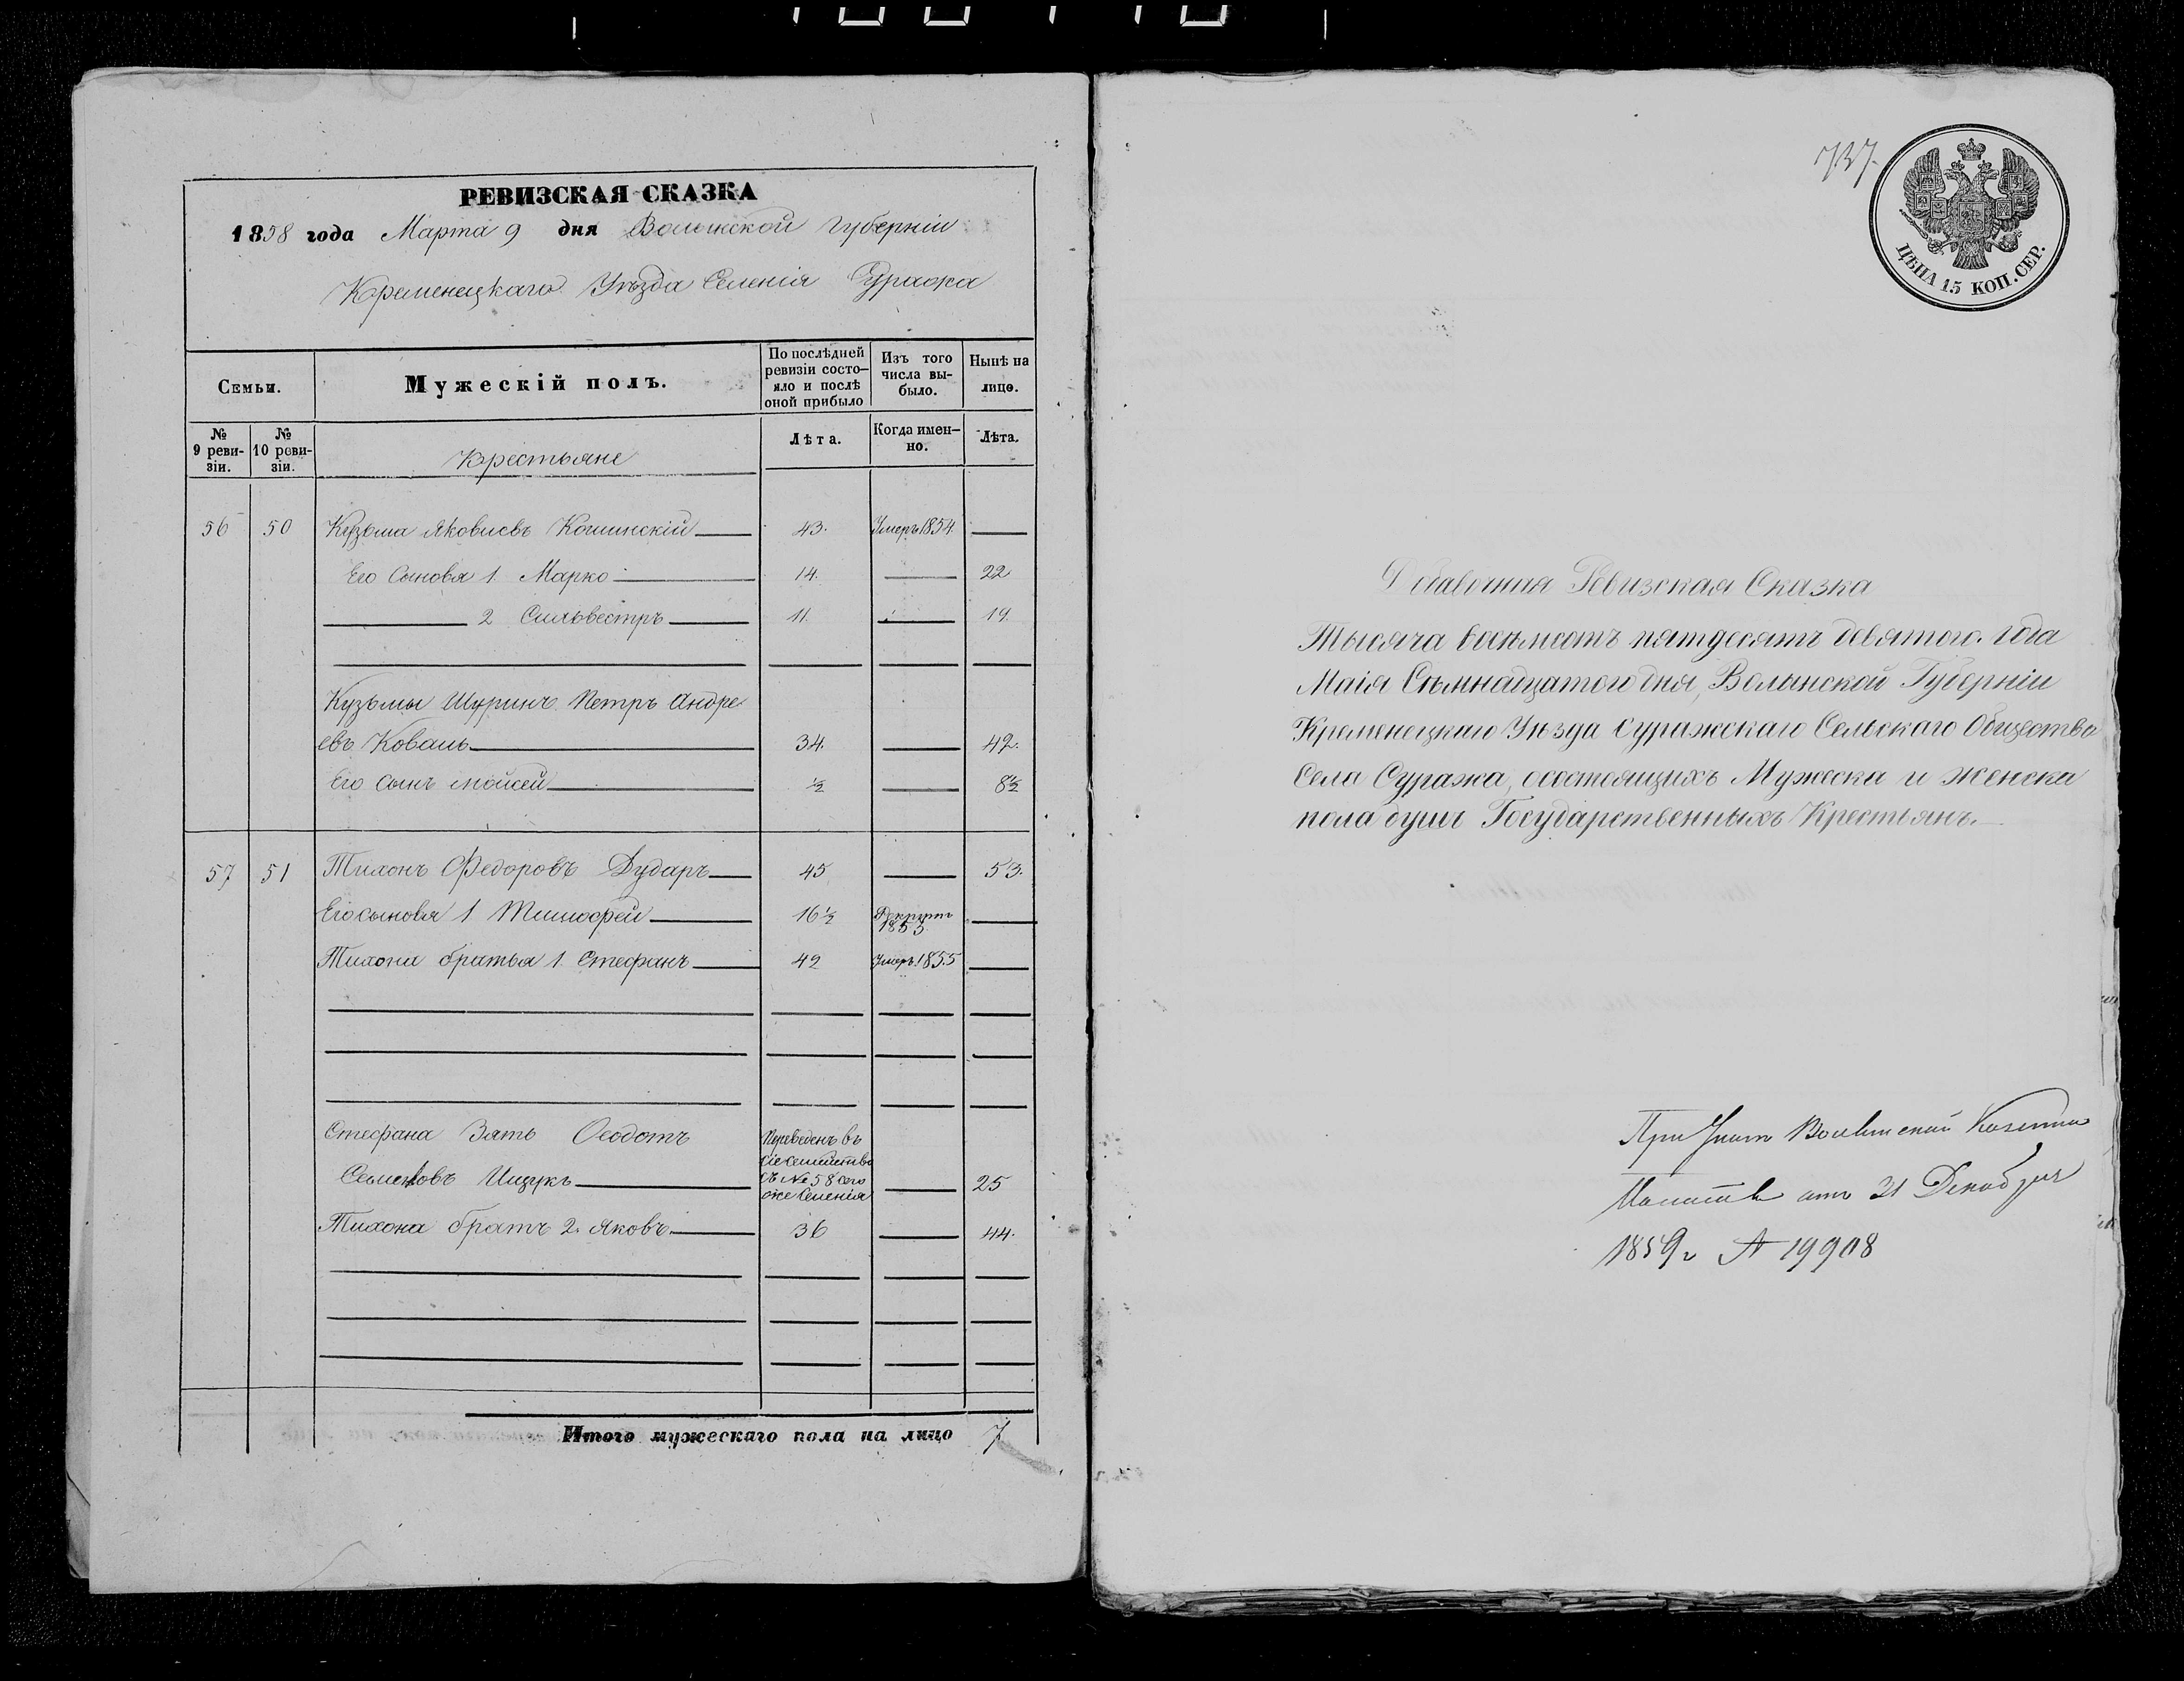 РЕВИЗСКАЯ СКАЗКА
1858 года Марта 9 дня Волынской Губерніи
Кременецкаго Уѣзда Селенія Суража
Семьи.
Мужескій полъ.
По послѣдней ревизіи состояло и послѣ оной прибыло
Изъ того числа выбыло.
Нынѣ на лице.
№ 9 ревизіи.
№ 10 ревизіи.
Крестьяне
Лѣта.
Когда именно.
Лѣта.
56 50 Кузьма Яковлевъ Кошинскій 43. Умеръ 1854
Его Сыновья 1 Марко 14. 22
2 Сильвестръ 11. 19.
Кузьмы Шуринъ Петръ Андре
евъ Коваль 34. 42.
Его Сынъ Мойсей ½ 8½
57 51 Тихонъ Федоровъ Дударъ 45 53.
Его сыновья 1 Тимофей 16½ Рекрутъ 1853
Тихона братья 1. Стефанъ 42 Умеръ 1855
Стефана Зять Феодотъ Переведенъ въ
сіе семейство
Семеновъ Ищукъ съ № 58 сего 25
же Селенія
Тихона братъ 2. Яковъ 36 44.
Итого мужескаго пола на лицо 7
737.
ЦѢНА 15 КОП. СЕР.
Ревизская Сказка
Тысяча восѣмсотъ пятдесятъ девятого года
Маія Сѣмнадцатого дня, Волынской Губерніи
Кременецкаго Уѣзда Суражскаго Сельскаго Общества
Села Суража, состоящихъ Мужеска и женска
пола душъ Государственныхъ Крестьянъ.
При Волынской Казенной
Палаты отъ 31 Декабря
1859 г № 19908